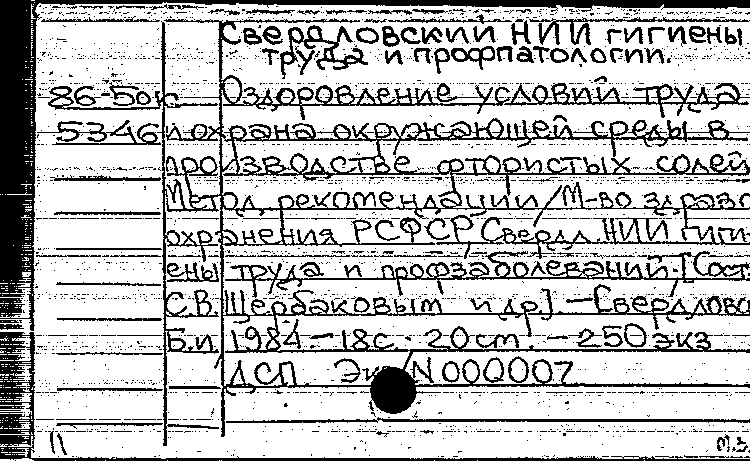 Свердловский НИИ гигиены
труда и профпатологии.
86-5окс Оздоровление условий труда
5346 и охрана окружающей среды в
производстве фтористых солей
Метод. рекомендации / М-во здраво
охранения РСФСР, Свердл. НИИ гиги-
ены труда и профзаболеваний. [Сост.
С.В. Щербаковым и др]. - Свердловс
Б.и. 1984 - 18с. 20 cm. - 250 экз
ДСП Экз N 000007